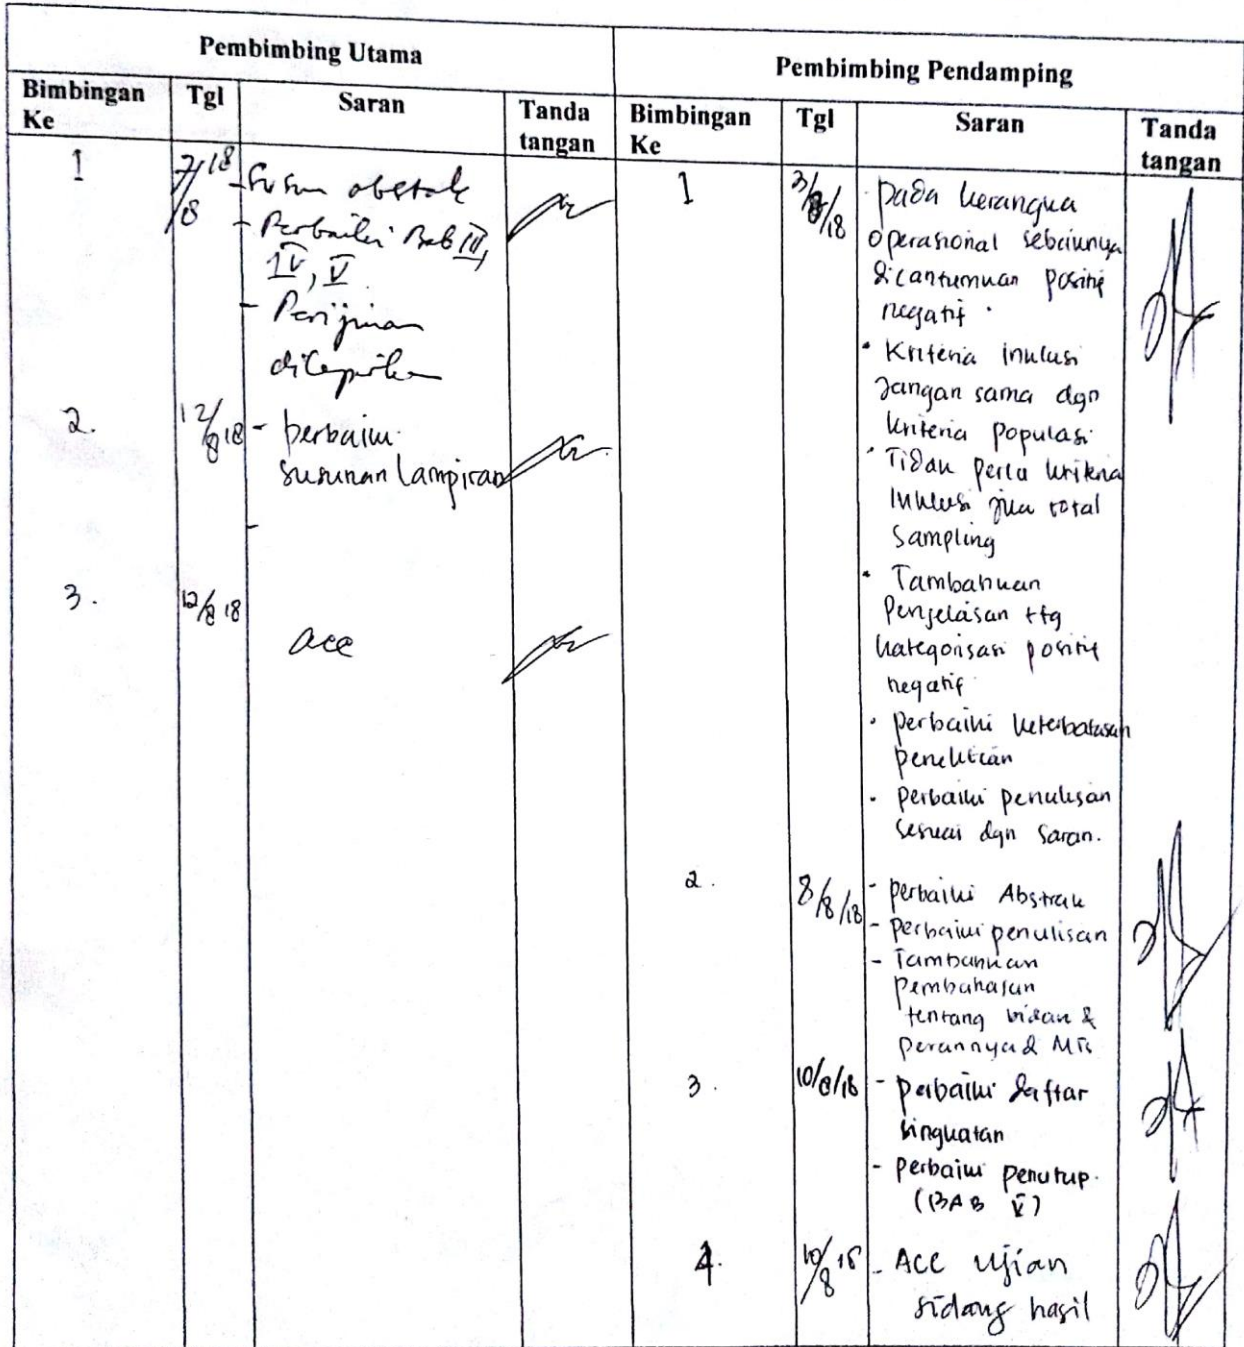 Pembimbing Utama
Pembimbing Pendamping
Bimbingan Ke
Tgl
Saran
Tanda tangan
Bimbingan Ke
Tgl
Saran
Tanda tangan
1
7/8 18
- Susun abstrak
- Perbaiki Bab III,
IV, V
- Perijinan
dilampirkan
2.
12/8 18
- perbaiki
susunan lampiran
-
3.
12/8 18
acc
1
3/8/18
· pada kerangka
operasional sebaiknya
dicantumkan positif
negatif
· Kriteria inklusi
Jangan sama dgn
kriteria populasi
· Tidak perlu kriteria
Inklusi jika total
Sampling
· Tambahkan
Penjelasan ttg
kategorisasi positif
negatif
· perbaiki keterbatasan
penelitian
· perbaiki penulisan
sesuai dgn saran.
2.
8/8/18
- perbaiki Abstrak
- perbaiki penulisan
- Tambahkan
pembahasan
tentang bidan &
perannya
3.
10/8/18
- perbaiki daftar
singkatan
- perbaiki penutup.
(BAB V)
4.
10/8 18
- ACC Ujian
sidang hasil